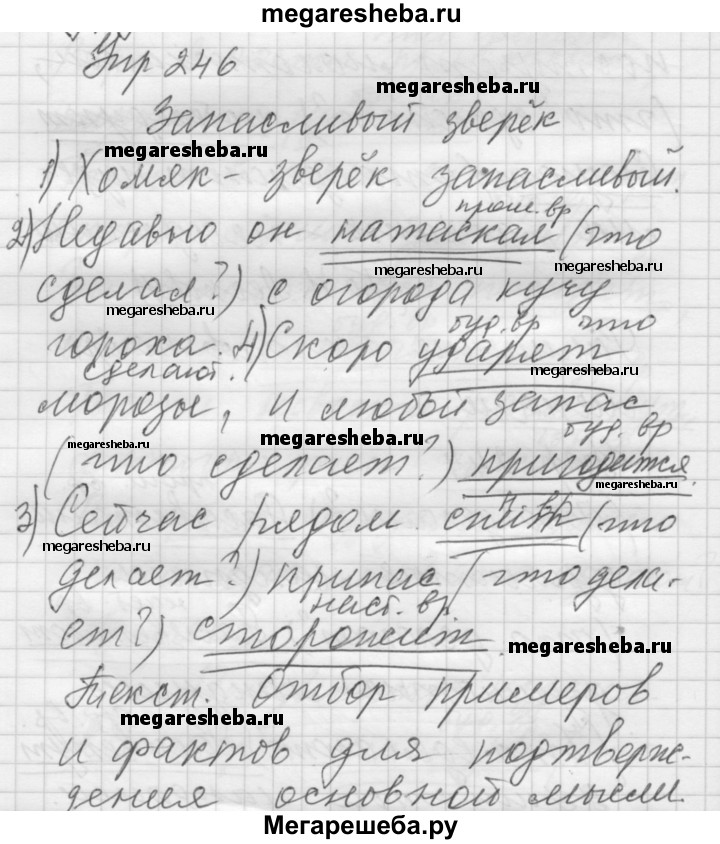 megaresheba.ru
Упр 246
megaresheba.ru
Запасливый зверёк
megaresheba.ru
1) Хомяк – зверёк запасливый.
прош. вр
2) Недавно он натаскал (что
megaresheba.ru megaresheba.ru
сделал?) с огорода кучу
megaresheba.ru
буд. вр что
гороха. 4) Скоро ударят
сделают. megaresheba.ru
морозы, и любой запас
megaresheba.ru megaresheba.ru буд. вр
(что сделает?) пригодится.
megaresheba.ru
н. вр
3) Сейчас рядом спит (что
megaresheba.ru
делает?) припас (что дела-
наст. вр
ет?) сторожит.
megaresheba.ru
Текст. Отбор примеров
megaresheba.ru
и фактов для подтверж-
дения основной мысли.
Мегарешеба.ру